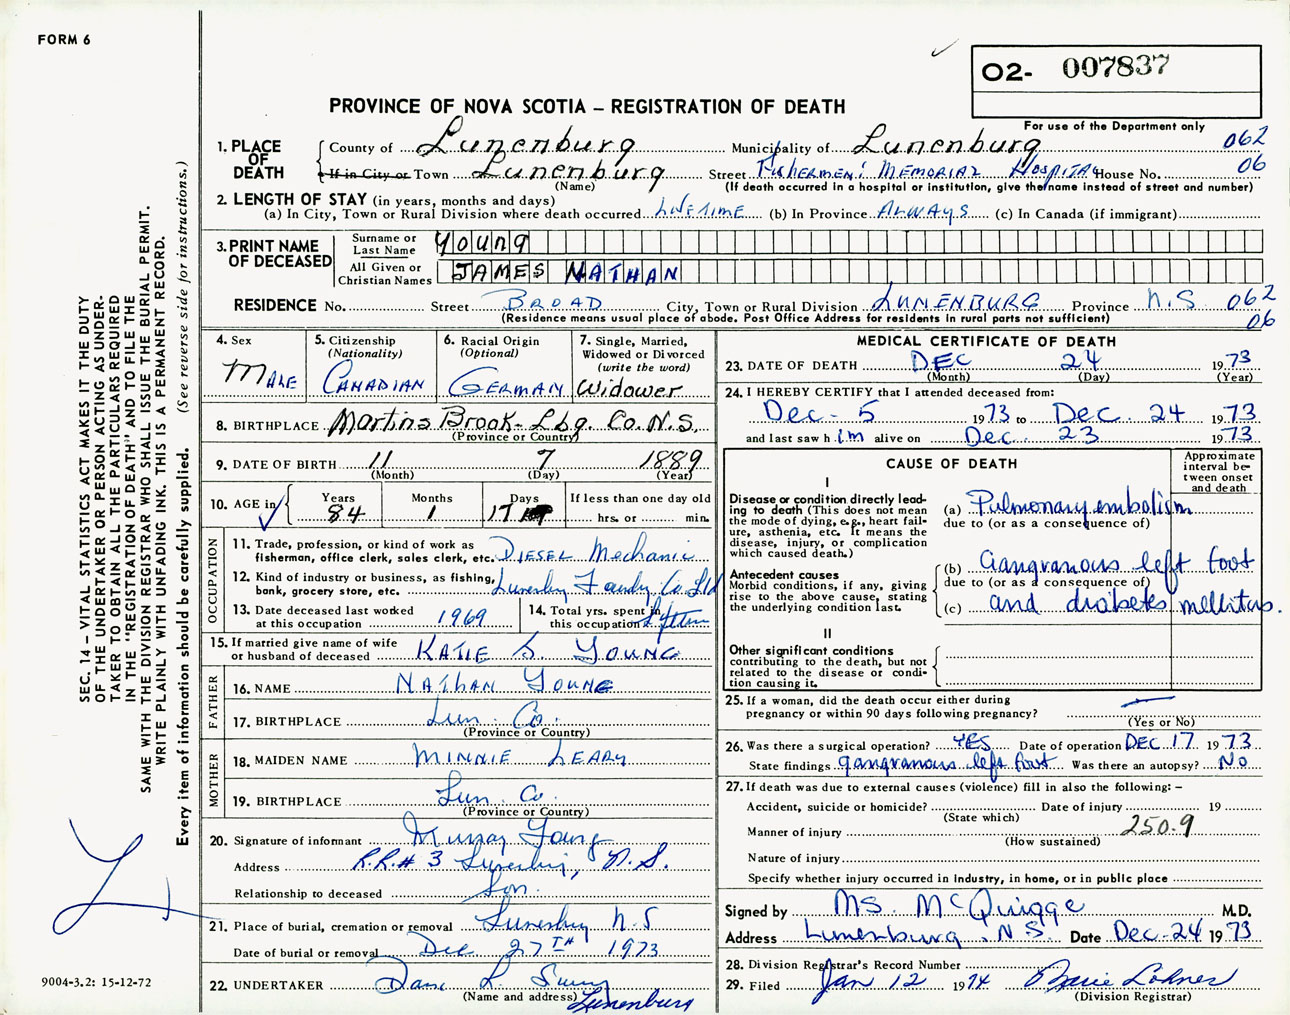 FORM 6
O2- 007837
PROVINCE OF NOVA SCOTIA – REGISTRATION OF DEATH
For use of the Department only
1. PLACE OF DEATH
County of Lunenburg Municipality of Lunenburg 062
If in City or Town Lunenburg Street Fishermen's Memorial Hospital House No. 06
(Name) (If death occurred in a hospital or institution, give the name instead of street and number)
2. LENGTH OF STAY (in years, months and days)
(a) In City, Town or Rural Division where death occurred LIFETIME (b) In Province ALWAYS (c) In Canada (if immigrant)
3. PRINT NAME OF DECEASED
Surname or Last Name Young
All Given or Christian Names JAMES NATHAN
RESIDENCE No. Street BROAD City, Town or Rural Division LUNENBURG Province N.S. 062
(Residence means usual place of abode. Post Office Address for residents in rural parts not sufficient) 06
4. Sex Male
5. Citizenship (Nationality) CANADIAN
6. Racial Origin (Optional) GERMAN
7. Single, Married, Widowed or Divorced (write the word) Widower
8. BIRTHPLACE Martins Brook - Lbg. Co. N.S.
(Province or Country)
9. DATE OF BIRTH 11 7 1889
(Month) (Day) (Year)
10. AGE in Years 84 Months 1 Days 17 If less than one day old hrs. or min.
OCCUPATION
11. Trade, profession, or kind of work as fisherman, office clerk, sales clerk, etc. DIESEL Mechanic
12. Kind of industry or business, as fishing, bank, grocery store, etc. Lunenburg Foundry Co. Ltd
13. Date deceased last worked at this occupation 1969
14. Total yrs. spent in this occupation Lifetime
15. If married give name of wife or husband of deceased KATIE S. YOUNG
FATHER
16. NAME NATHAN YOUNG
17. BIRTHPLACE Lun. Co.
(Province or Country)
MOTHER
18. MAIDEN NAME MINNIE LEARY
19. BIRTHPLACE Lun. Co.
(Province or Country)
20. Signature of informant Murray Young
Address R.R.# 3 Lunenburg, N.S.
Relationship to deceased Son.
21. Place of burial, cremation or removal Lunenburg N.S
Date of burial or removal Dec 27TH 1973
22. UNDERTAKER
(Name and address) Lunenburg
MEDICAL CERTIFICATE OF DEATH
23. DATE OF DEATH DEC 24 1973
(Month) (Day) (Year)
24. I HEREBY CERTIFY that I attended deceased from:
Dec - 5 1973 to Dec. 24 1973
and last saw him alive on Dec. 23 1973
CAUSE OF DEATH
Approximate interval between onset and death
I
Disease or condition directly leading to death (This does not mean the mode of dying, e.g., heart failure, asthenia, etc. It means the disease, injury, or complication which caused death.)
(a) Pulmonary embolism
due to (or as a consequence of)
Antecedent causes
Morbid conditions, if any, giving rise to the above cause, stating the underlying condition last.
(b) Gangranous left foot
due to (or as a consequence of)
(c) and diabetes mellitus.
II
Other significant conditions
contributing to the death, but not related to the disease or condition causing it.
25. If a woman, did the death occur either during pregnancy or within 90 days following pregnancy? —
(Yes or No)
26. Was there a surgical operation? YES Date of operation DEC 17 1973
State findings gangranous left foot Was there an autopsy? No
27. If death was due to external causes (violence) fill in also the following: –
Accident, suicide or homicide? Date of injury 19
(State which)
Manner of injury 250.9
(How sustained)
Nature of injury
Specify whether injury occurred in industry, in home, or in public place
Signed by MS. McQuigge M.D.
Address Lunenburg, N.S. Date Dec-24 1973
28. Division Registrar's Record Number
29. Filed Jan 12 1974
(Division Registrar)
SEC. 14 – VITAL STATISTICS ACT MAKES IT THE DUTY
OF THE UNDERTAKER OR PERSON ACTING AS UNDER-
TAKER TO OBTAIN ALL THE PARTICULARS REQUIRED
IN THE "REGISTRATION OF DEATH" AND TO FILE THE
SAME WITH THE DIVISION REGISTRAR WHO SHALL ISSUE THE BURIAL PERMIT.
WRITE PLAINLY WITH UNFADING INK. THIS IS A PERMANENT RECORD.
Every item of information should be carefully supplied. (See reverse side for instructions.)
9004-3.2: 15-12-72